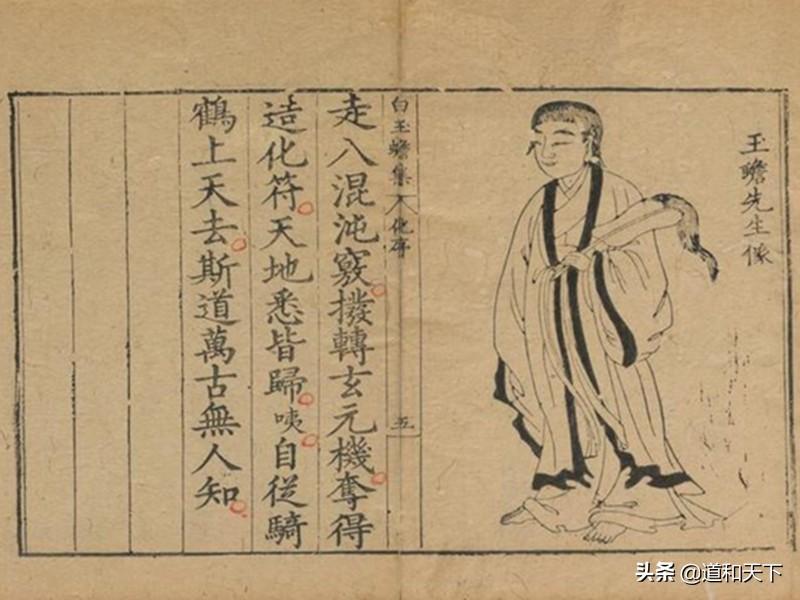 玉蟾先生像
白玉蟾集
五
走入混沌竅撥轉玄元機奪得
造化符天地悉皆歸咦自從騎
鶴上天去斯道萬古無人知
头条 @道和天下